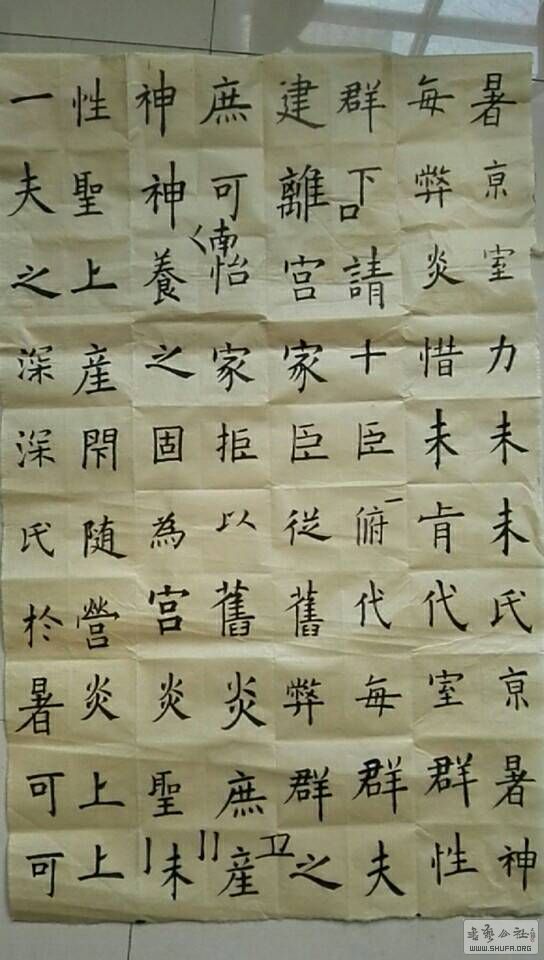 暑京室力未未氏京暑神
每弊炎惜未肯代室群性
群下口請十臣俯一代每群夫
建離宮家臣從舊弊群之
庶可南怡家拒以舊炎庶産
神神養之固為宮炎聖未
性聖上産随營炎上上
一夫之深深氏於暑可可
WWW.SHUFA.ORG